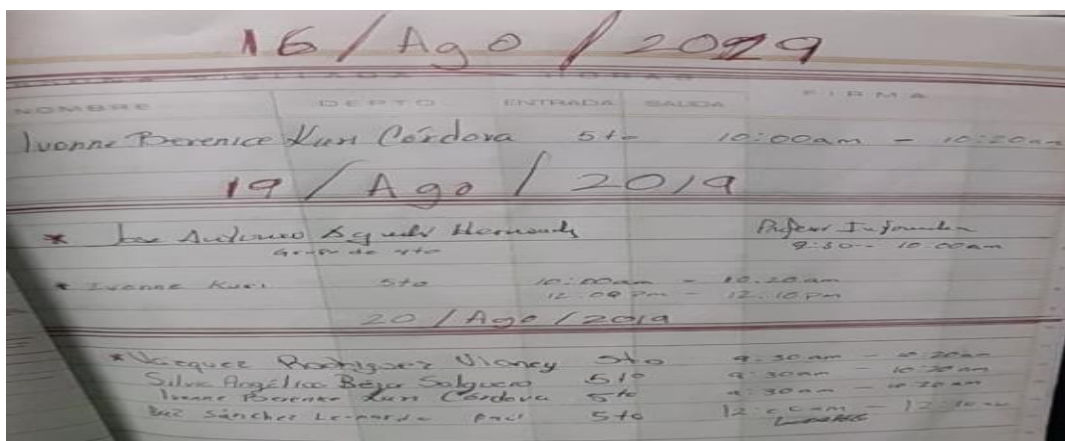 16 / Ago / 2019
NOMBRE DEPTO ENTRADA SALIDA FIRMA
Ivonne Berenice Kuri Córdova 5to 10:00am - 10:20am
19 / Ago / 2019
* Jose Antonio Hernandez Profesor
Grupo de 4to 9:30 - 10:00am
* Ivonne Kuri 5to 10:00am - 10:20am
12:00pm - 12:10pm
20 / Ago / 2019
* Vazquez Rodriguez Vianey 5to 9:30am - 10:20am
Silvia Angélica Salguero 5to 9:30am - 10:20am
Ivonne Berenice Kuri Córdova 5to 9:30am - 10:20am
Sánchez Leonardo 5to